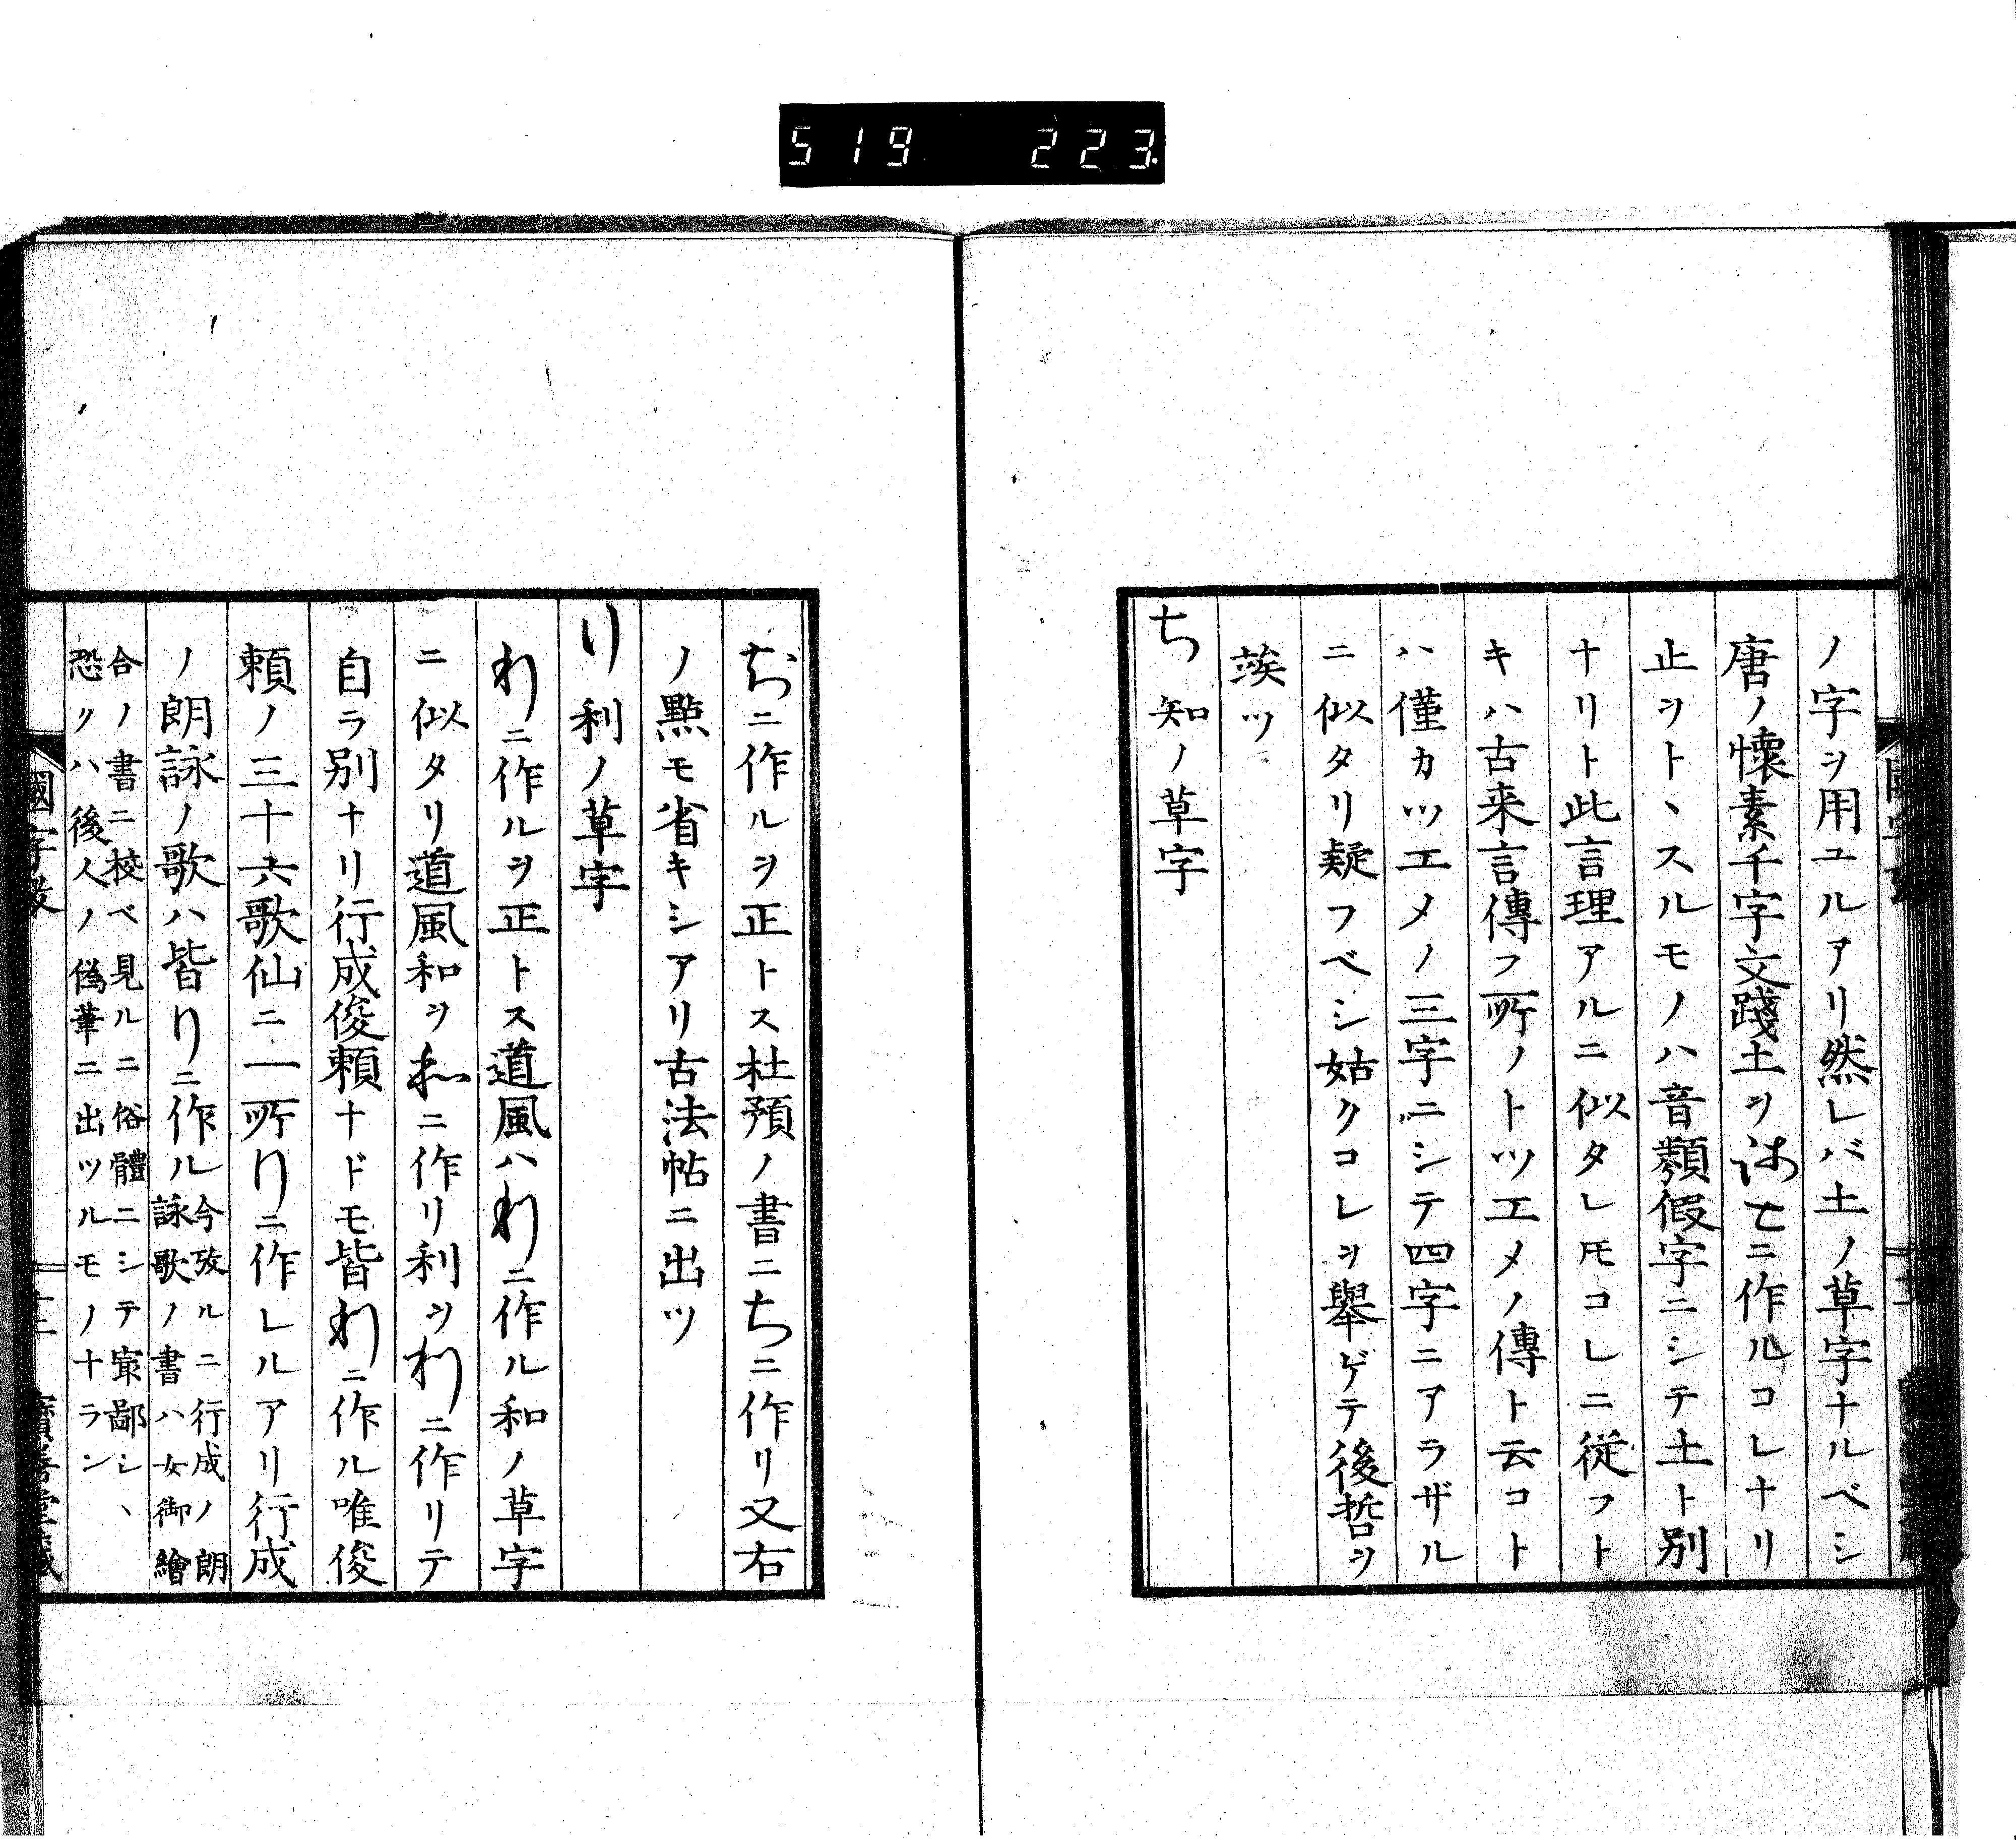 519 223
ノ字ヲ用ユルアリ然レバ土ノ草字ナルベシ
唐ノ懐素千字文踐土ヲ
ニ作ルコレナリ
止ヲトヽスルモノハ音類假字ニシテ土ト別
ナリト此言理アルニ似タレ𪜈コレニ従フト
キハ古来言傳フ所ノトツエメノ傳ト云コト
ハ僅カツエメノ三字ニシテ四字ニアラザル
ニ似タリ疑フベシ姑クコレヲ舉ゲテ後哲ヲ
竢ツ
ち 知ノ草字
ニ作ルヲ正トス杜預ノ書ニちニ作リ又右
ノ點モ省キシアリ古法帖ニ出ツ
り 利ノ草字
わニ作ルヲ正トス道風ハわニ作ル和ノ草字
ニ似タリ道風和ヲ
ニ作リ利ヲわニ作リテ
自ラ別ナリ行成俊頼ナドモ皆わニ作ル唯俊
頼ノ三十六歌仙ニ一所りニ作レルアリ行成
ノ朗詠ノ歌ハ皆りニ作ル
今攷ルニ行成ノ朗
詠歌ノ書ハ女御繪
合ノ書ニ校ベ見ルニ俗體ニシテ寂鄙シヽ
恐クハ後人ノ偽筆ニ出ツルモノナラン
國字攷